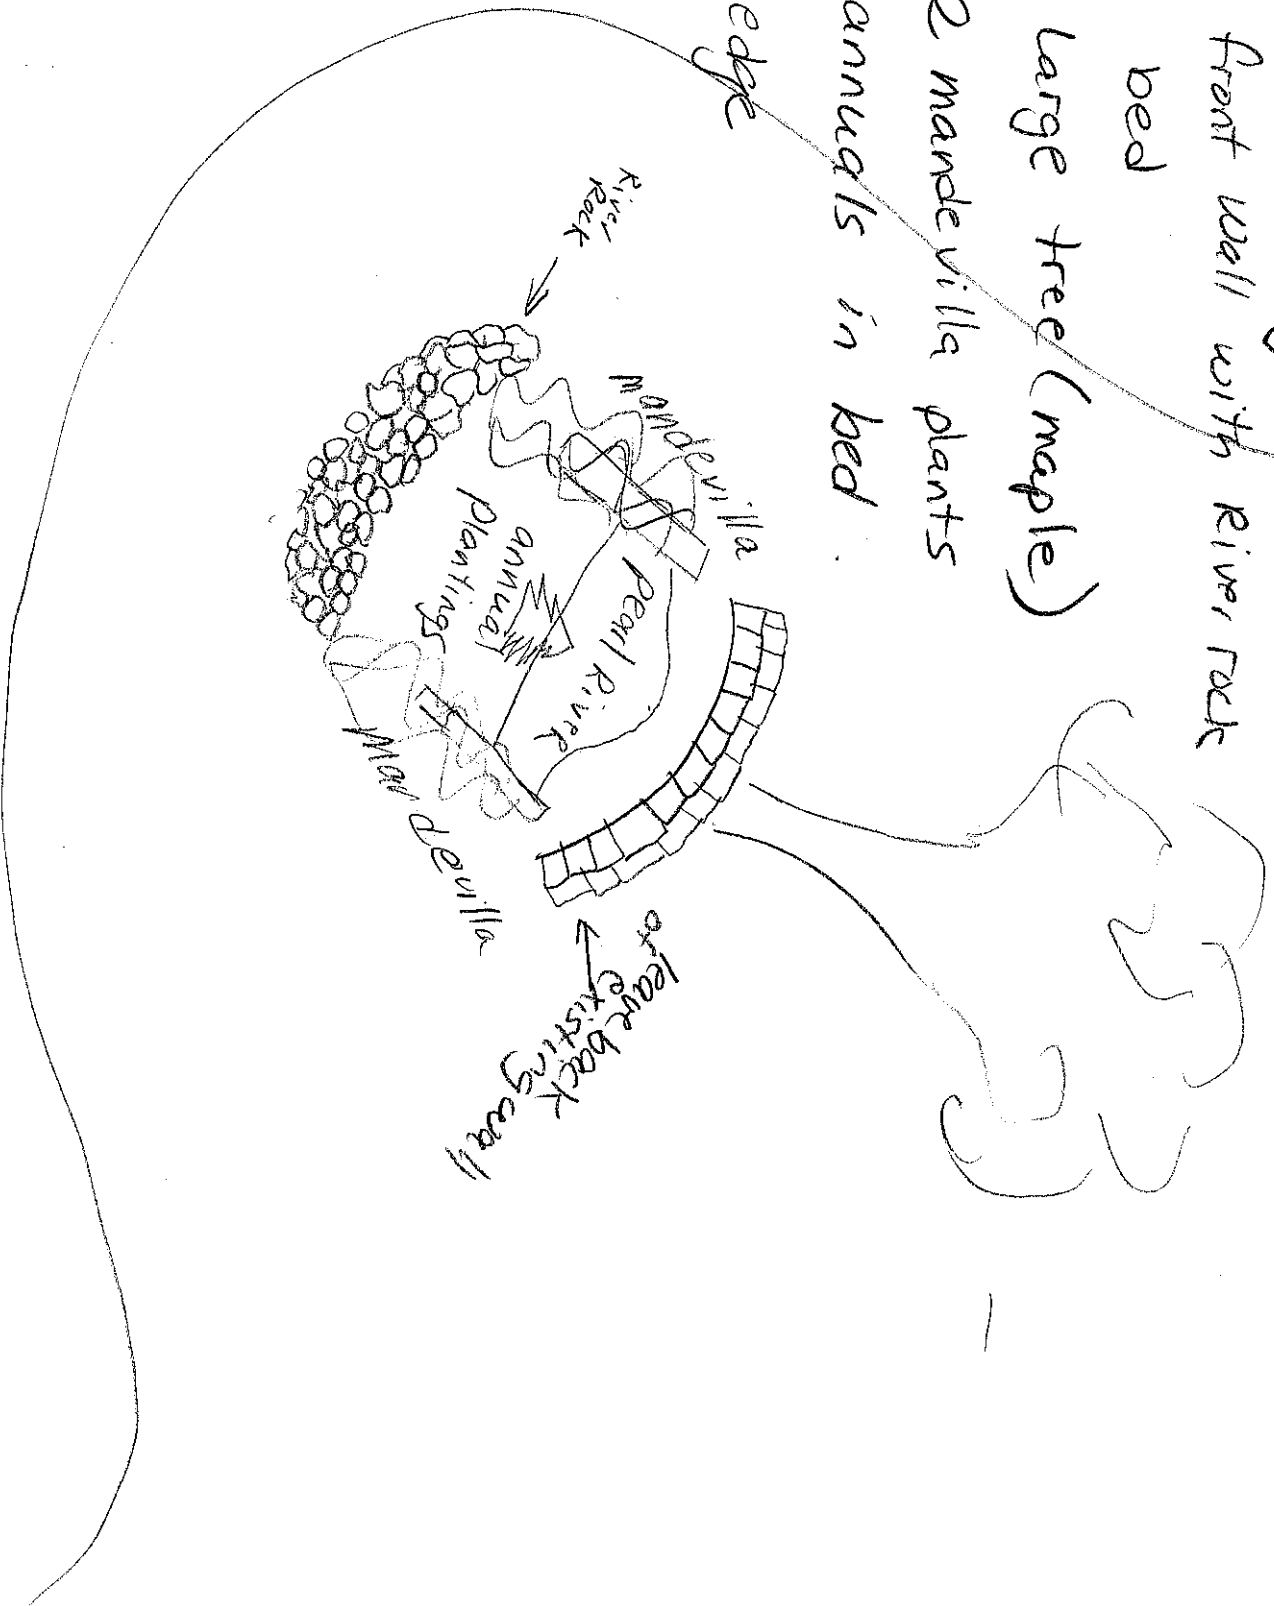 front wall with River rock
bed
Large tree (maple)
2 mandevilla plants
annuals in bed
edge
River
Rock
Mandevilla
Pearl River
annual
Plantings
Mandevilla
leave back
existing wall